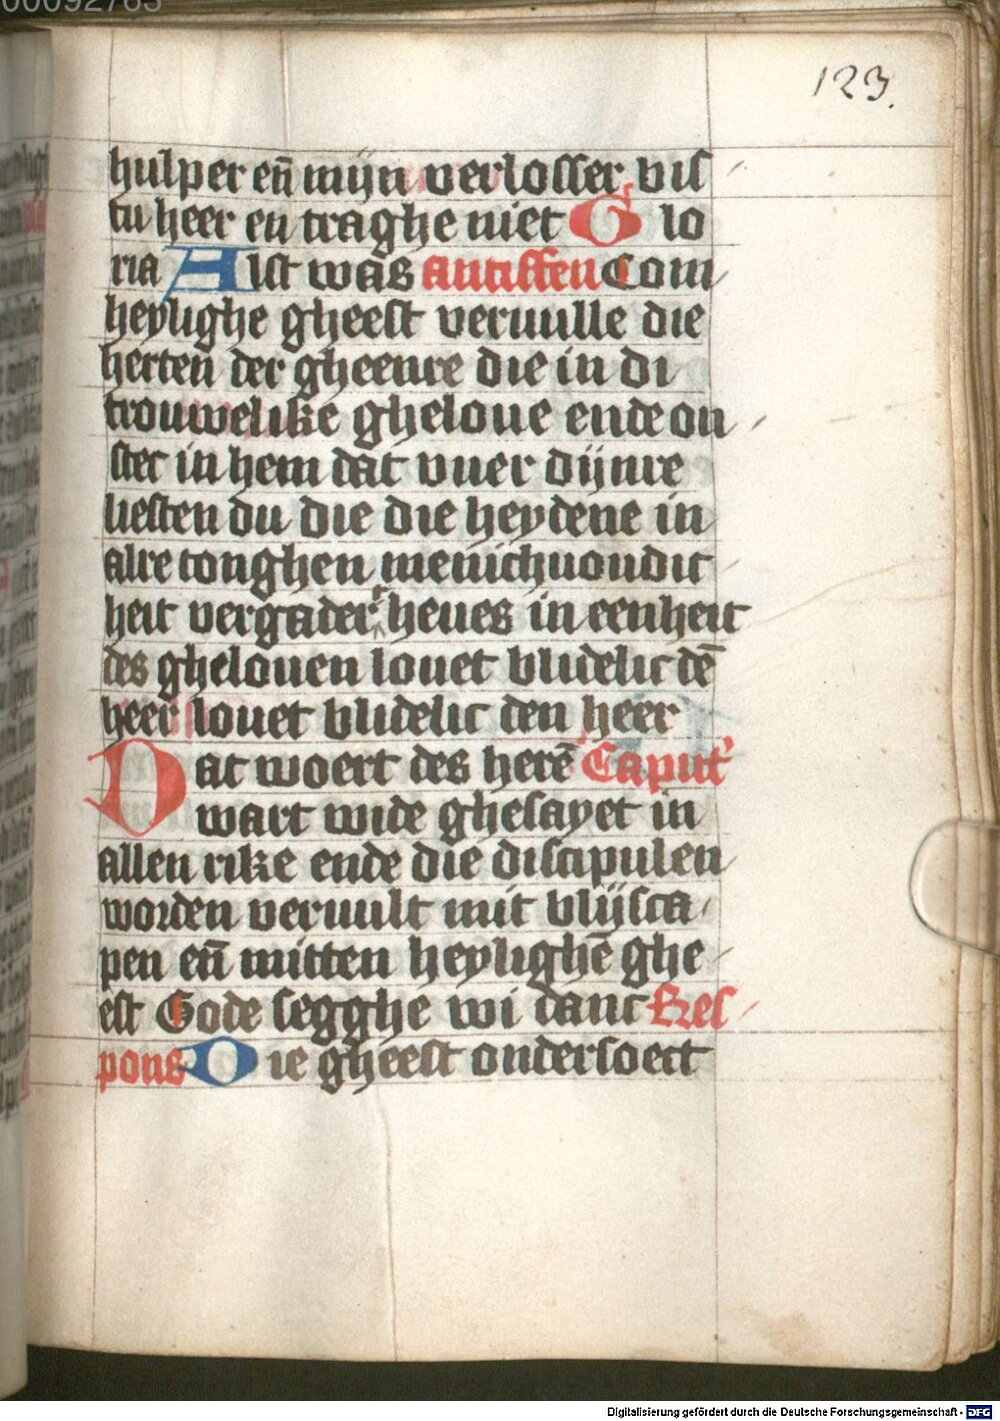 00092763
123.
hulper en̄ mijn verlosser vis
tu heer en traghe niet Glo
ria Alst was antiffen Com
heylighe gheest veruulle die
herten der gheenre die in di
trouwelike gheloue ende on
stec in hem dat vuer dijnre
liefsten du die die heydene in
alre tonghen menichuondic
heit vergader heues in eenheit
des ghelouen louet blidelic dē
heer louet blidelic den heer
Dat woert des herē Caput
wart wide ghesayet in
allen rike ende die discipulen
worden veruult mit blijsca
pen en̄ mitten heylighē ghe
est Gode segghe wi danc Res
pons Die gheest ondersoect
Digitalisierung gefördert durch die Deutsche Forschungsgemeinschaft - DFG